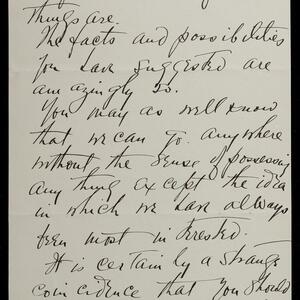 things are.
The facts and possibilities
you have suggested are
amazingly so.
You may as well know
that we can go anywhere
without the sense of possessing
any thing except the idea
in which we have always
been most interested.
It is certainly a strange
coincidence that you should